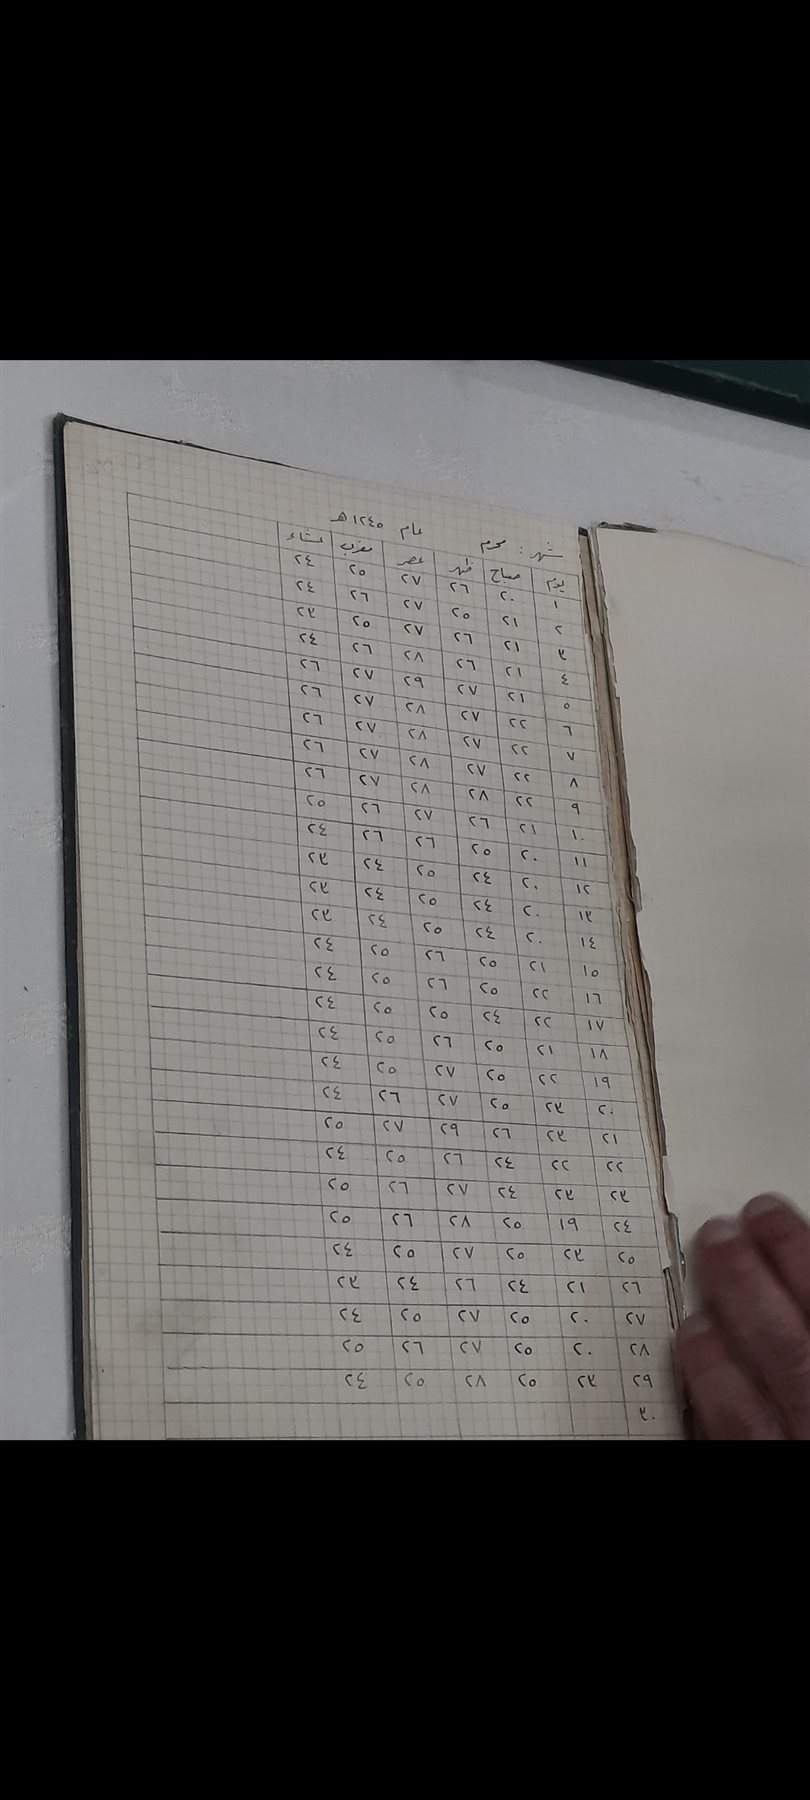 شهر : محرم عام ١٢٤٥هـ
يوم صباح ظهر عصر مغرب عشاء
١ ٢٠ ٢٦ ٢٧ ٢٥ ٢٤
٢ ٢١ ٢٥ ٢٧ ٢٦ ٢٤
٣ ٢١ ٢٦ ٢٧ ٢٥ ٢٣
٤ ٢١ ٢٦ ٢٨ ٢٦ ٢٤
٥ ٢١ ٢٧ ٢٩ ٢٧ ٢٦
٦ ٢٢ ٢٧ ٢٨ ٢٧ ٢٦
٧ ٢٢ ٢٧ ٢٨ ٢٧ ٢٦
٨ ٢٢ ٢٧ ٢٨ ٢٧ ٢٦
٩ ٢٢ ٢٨ ٢٨ ٢٧ ٢٦
١٠ ٢١ ٢٦ ٢٧ ٢٦ ٢٥
١١ ٢٠ ٢٥ ٢٦ ٢٦ ٢٤
١٢ ٢٠ ٢٤ ٢٥ ٢٤ ٢٣
١٣ ٢٠ ٢٤ ٢٥ ٢٤ ٢٣
١٤ ٢٠ ٢٤ ٢٥ ٢٤ ٢٣
١٥ ٢١ ٢٥ ٢٦ ٢٥ ٢٤
١٦ ٢٢ ٢٥ ٢٦ ٢٥ ٢٤
١٧ ٢٢ ٢٤ ٢٥ ٢٥ ٢٤
١٨ ٢١ ٢٥ ٢٦ ٢٥ ٢٤
١٩ ٢٢ ٢٥ ٢٧ ٢٥ ٢٤
٢٠ ٢٣ ٢٥ ٢٧ ٢٦ ٢٤
٢١ ٢٣ ٢٦ ٢٩ ٢٧ ٢٥
٢٢ ٢٢ ٢٤ ٢٦ ٢٥ ٢٤
٢٣ ٢٣ ٢٤ ٢٧ ٢٦ ٢٥
٢٤ ١٩ ٢٥ ٢٨ ٢٦ ٢٥
٢٥ ٢٣ ٢٥ ٢٧ ٢٥ ٢٤
٢٦ ٢١ ٢٤ ٢٦ ٢٤ ٢٣
٢٧ ٢٠ ٢٥ ٢٧ ٢٥ ٢٤
٢٨ ٢٠ ٢٥ ٢٧ ٢٦ ٢٥
٢٩ ٢٣ ٢٥ ٢٨ ٢٥ ٢٤
٣٠